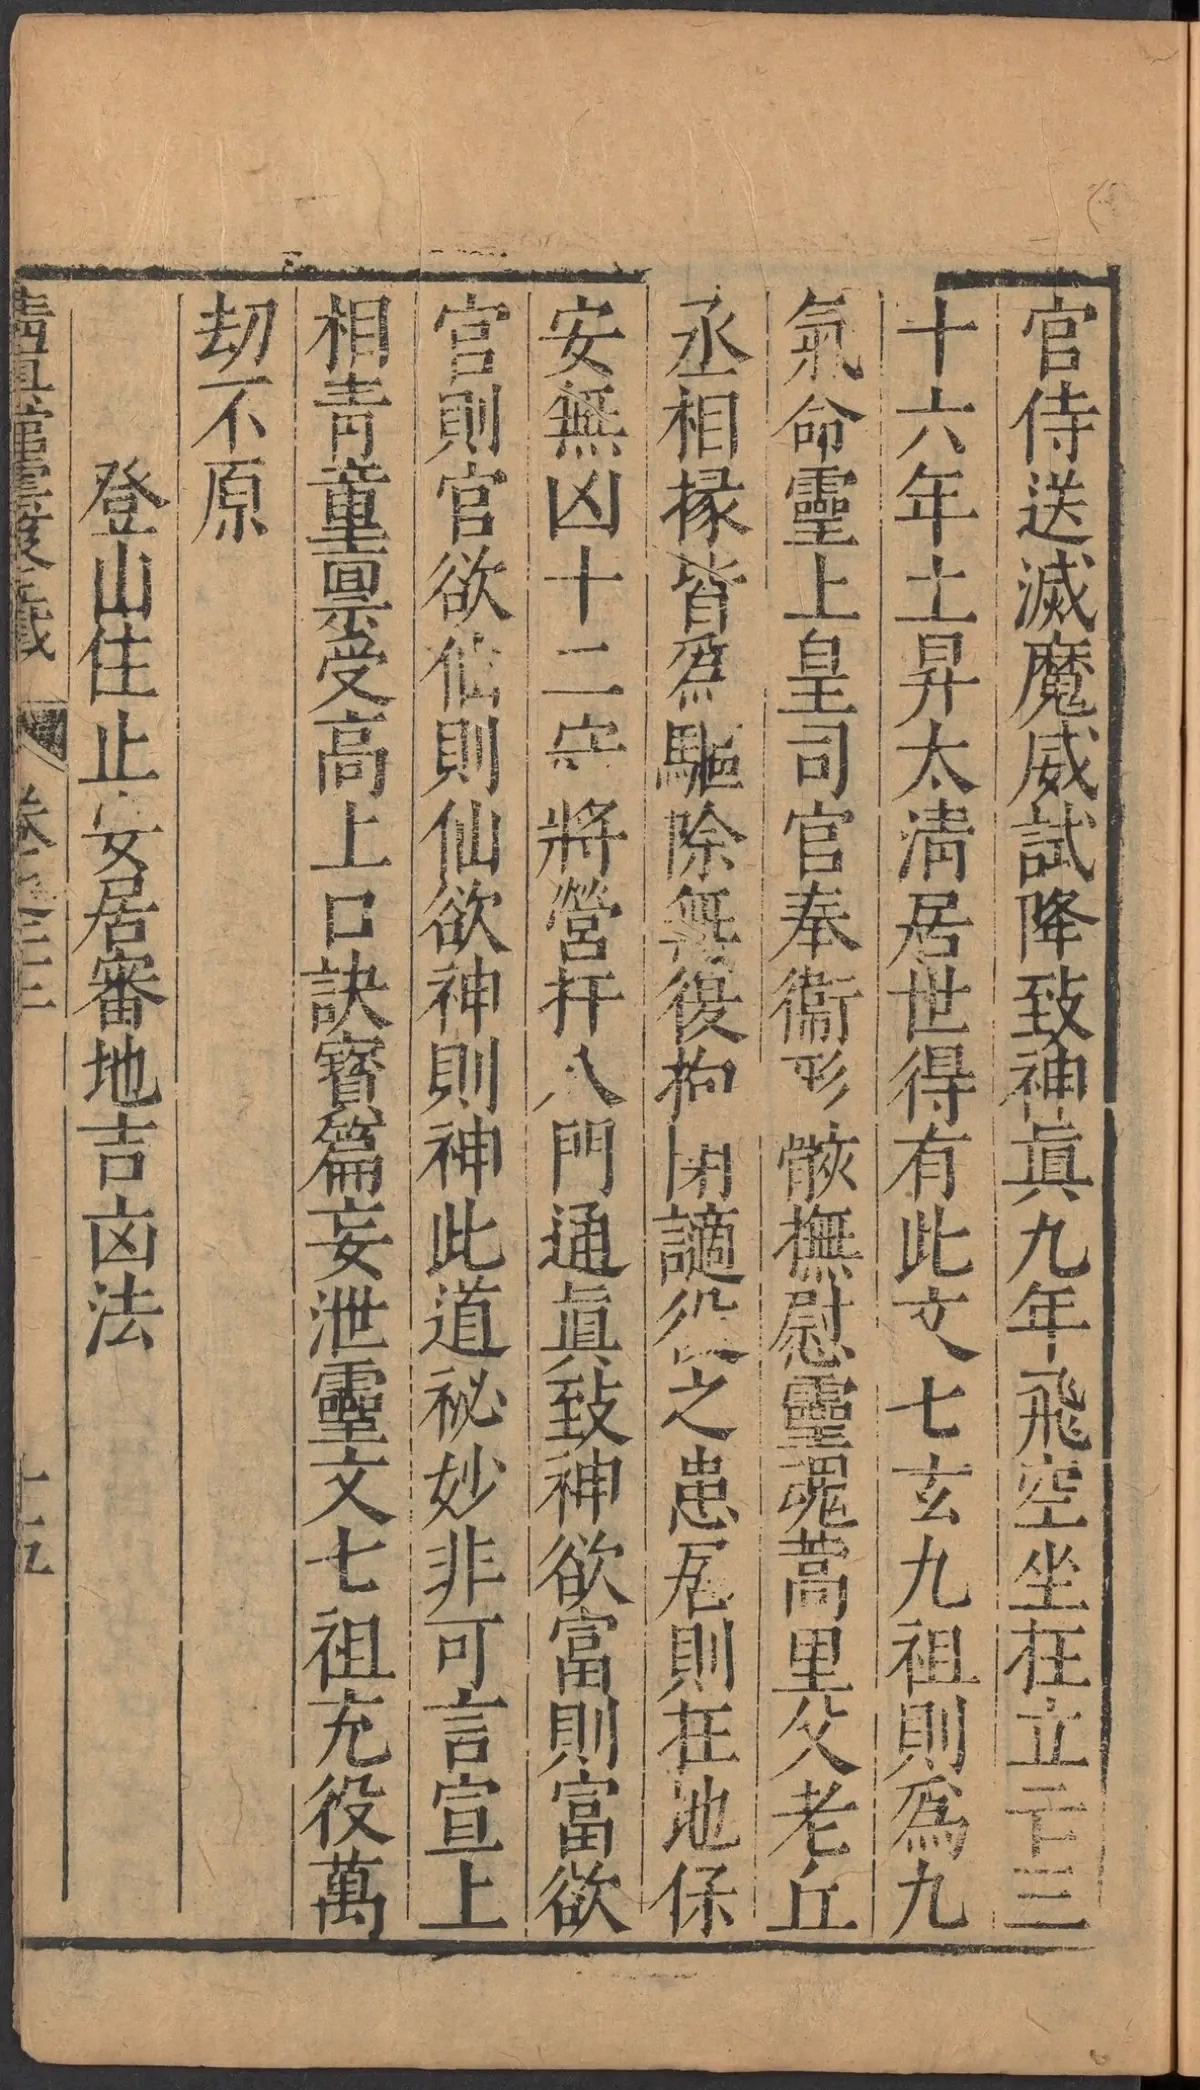 官侍送滅魔威試降致神真九年飛空坐在立亡三
十六年上昇太清居世得有此文七玄九祖則為九
氣命靈上皇司官奉衞形骸撫慰靈魂蒿里父老丘
丞相掾皆為驅除無復拘閉謫役之患居則在地保
安無凶十二守將營扞八門通真致神欲富則富欲
官則官欲仙則仙欲神則神此道祕妙非可言宣上
相青童禀受高上口訣寳篇妄泄靈文七祖充役萬
劫不原
登山住止安居審地吉凶法